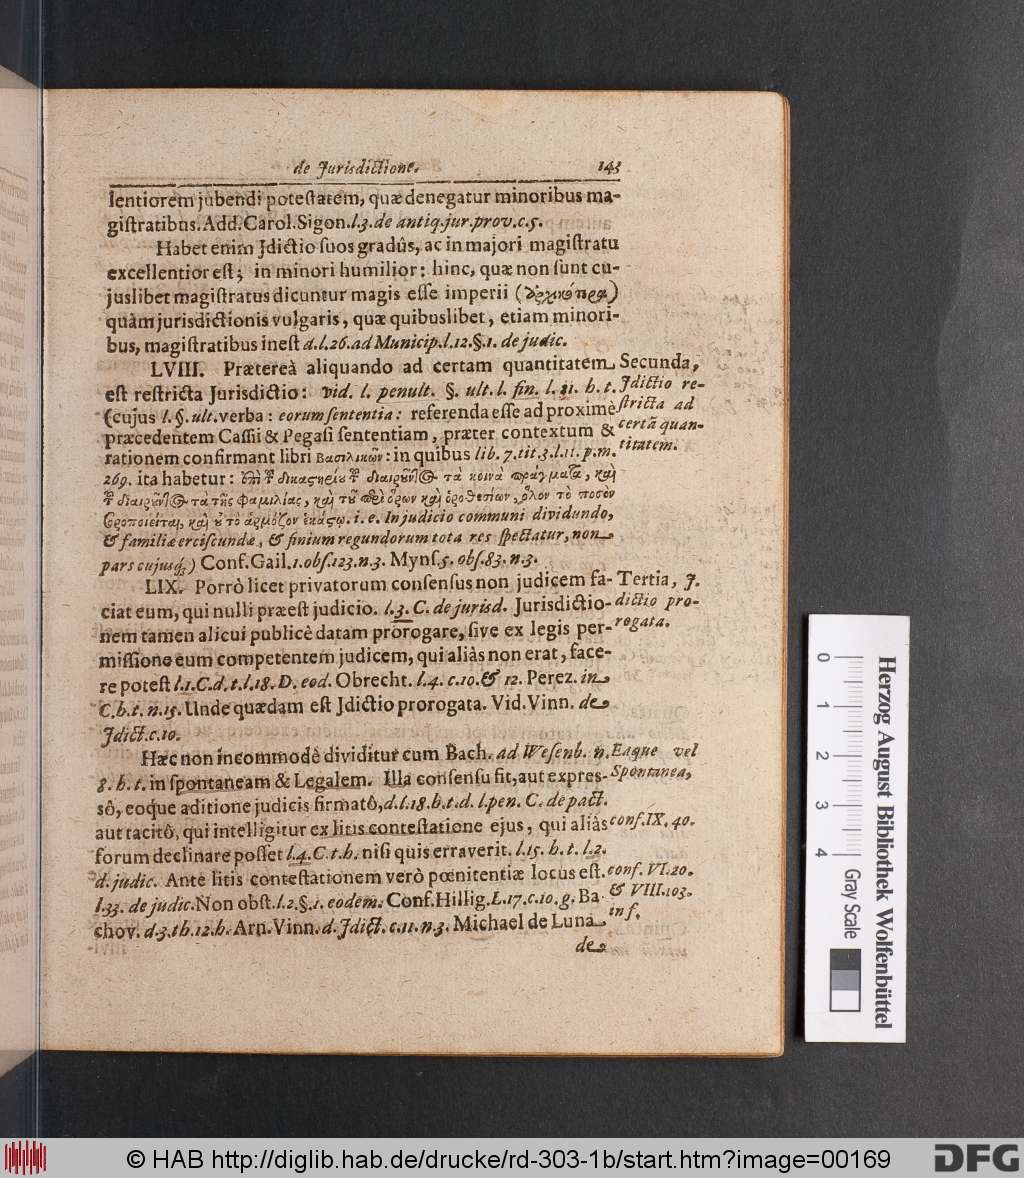 de Jurisdictione. 143
lentiorem jubendi potestatem, quæ denegatur minoribus ma-
gistratibus. Add. Carol. Sigon. l.3. de antiq. jur. prov. c.5.
Habet enim Jdictio suos gradûs, ac in majori magistratu
excellentior est; in minori humilior: hinc, quæ non sunt cu-
juslibet magistratus dicuntur magis esse imperii (ἀρχικώτερα)
quàm jurisdictionis vulgaris, quæ quibuslibet, etiam minori-
bus, magistratibus inest d.l.26. ad Municip. l.12.§.1. de judic.
LVIII. Prætereà aliquando ad certam quantitatem
est restricta Jurisdictio: vid. l. penult. §. ult. l. fin. l. 11. h. t.
(cujus l. §. ult. verba: eorum sententia: referenda esse ad proximè
præcedentem Cassii & Pegasi sententiam, præter contextum &
rationem confirmant libri Βασιλικῶν: in quibus lib. 7. tit. 3. l. 11. p. m.
269. ita habetur: ἐπὶ τ̃ δικαστηρίου τ̃ διαιροῦντος τὰ κοινὰ πράγματα, καὶ
τ̃ διαιροῦντος τὰ τῆς φαμιλίας, καὶ τοῦ περὶ ὅρων καὶ ὁροθεσίων, ὅλον τὸ ποσὸν
ζητεῖται, καὶ οὐ τὸ ἁρμόζον ἑκάστῳ. i. e. In judicio communi dividundo,
& familiæ erciscundæ, & finium regundorum tota res spectatur, non
pars cujusq;) Conf. Gail. 1. obs. 123. n. 3. Myns. 5. obs. 83. n. 3.
LIX. Porrò licet privatorum consensus non judicem fa-
ciat eum, qui nulli præest judicio. l. 3. C. de jurisd. Jurisdictio-
nem tamen alicui publicè datam prorogare, sive ex legis per-
missione eum competentem judicem, qui aliàs non erat, face-
re potest l. 1. C. d. t. l. 18. D. eod. Obrecht. l. 4. c. 10. & 12. Perez. in
C. h. t. n. 15. Unde quædam est Jdictio prorogata. Vid. Vinn. de
Jdict. c. 10.
Hæc non incommodè dividitur cum Bach. ad Wesenb. n.
8. h. t. in spontaneam & Legalem. Illa consensu fit, aut expres-
sô, eoque aditione judicis firmatô, d. l. 18. h. t. d. l. pen. C. de pact.
aut tacitô, qui intelligitur ex litis contestatione ejus, qui aliàs
forum declinare posset l. 4. C. t. h. nisi quis erraverit. l. 15. h. t. l. 2.
d. judic. Ante litis contestationem verò pœnitentiæ locus est.
l. 33. de judic. Non obst. l. 2. §. 1. eodem. Conf. Hillig. L. 17. c. 10. g. Ba
chov. d. 3. th. 12. h. Arn. Vinn. d. Jdict. c. 11. n. 3. Michael de Luna
de
Secunda,
Jdictio re-
stricta ad
certã quan-
titatem.
Tertia, J.
dictio pro-
rogata.
Eaque vel
Spontanea,
conf. IX. 40.
conf. VI. 20.
& VIII. 103.
inf.
Herzog August Bibliothek Wolfenbüttel
0 1 2 3 4 Gray Scale
© HAB http://diglib.hab.de/drucke/rd-303-1b/start.htm?image=00169
DFG